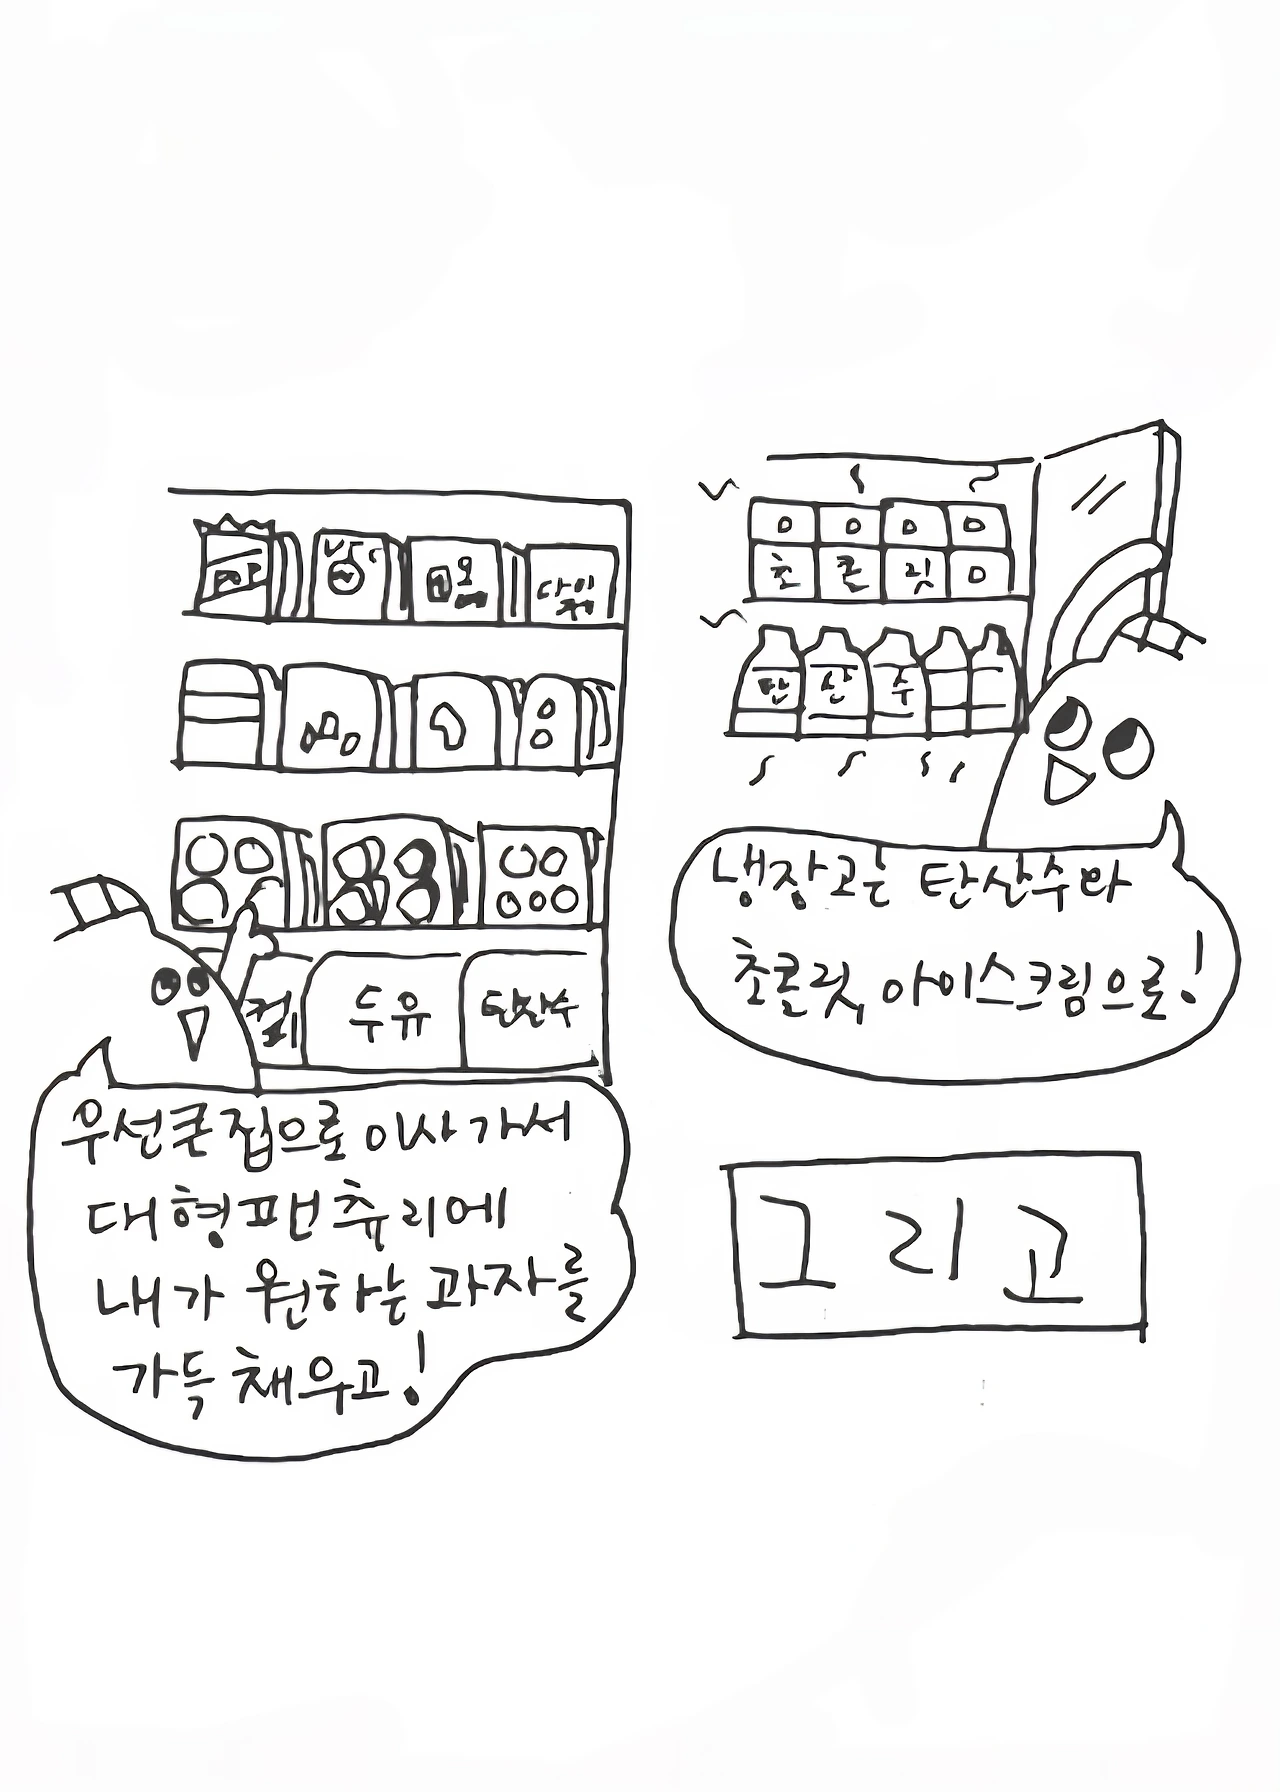 다이제
두유
탄산수
우선 큰 집으로 이사 가서
대형 팬츄리에
내가 원하는 과자를
가득 채우고!
초콜릿
탄산수
냉장고는 탄산수와
초콜릿 아이스크림으로!
그리고